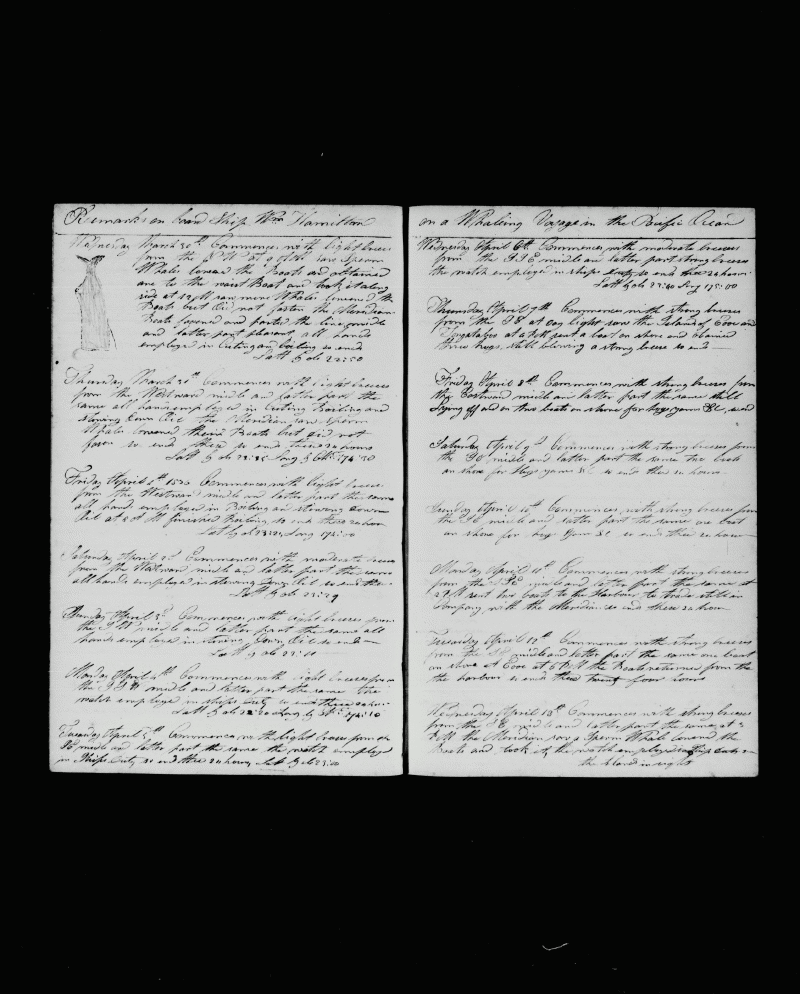 Remarks on board Ship Wm Hamilton
Wednesday March 30th Commences with light breeses
from the N W at 9 saw Sperm
Whales lowered the Boats and
one to the waist Boat and took it along
side at 12 M saw more Whales lowered the
Boats but did not fasten the Meridian
Boats lowered and parted the line midle
and latter part pleasant all hands
employed in Cuting and boiling so ends
Latt by ob 23:50
Thursday March 31st Commences with light breeses
from the Westward midle and latter part the
same all hands employed in Cuting Boiling and
Stowing down Oil the Meridian saw Sperm
Whales lowered their Boats but did not
fasten so ends these 24 hours
Latt by ob Long by
Friday April 1st Commences with light breeses
from the Westward midle and latter part the same
all hands employed in Boiling and stowing down
Oil at finished Boiling so ends these 24 hours
Latt by ob Long
Saturday April 2d Commences with moderate breeses
from the Westward midle and latter part the same
all hands employed in stowing down Oil so ends these
Latt by ob 23:29
Sunday April 3d Commences with light breeses from
the midle and latter part the same all
hands employed in stowing down Oil so ends
Latt by ob
Monday April 4th Commences with light breeses from
the midle and latter part the same the
watch employed in ships duty so ends these 24 hours
Latt by ob Long by
Tuesday April 5th Commences with light breeses from the
SE midle and latter part the same the watch employed
in Ships duty so ends these 24 hours Latt by ob 23:00
on a Whaleing Voyage in the Pacific Ocean
Wednesday April 6th Commences with moderate breeses
from the S S E midle and latter part strong breeses
the watch employed in ships duty so ends these 24 hours
Latt by ob Long 175:00
Thursday April 7th Commences with strong breeses
from the SE at day light saw the Island of Eooe and
Tongataboo at sent a boat on shore and obtained
three hogs still blowing a strong breese so ends
Friday April 8th Commences with strong breeses from
the Eastward midle and latter part the same still
lying off and on two boats on shore for hogs yams &c so ends
Saturday April 9th Commences with strong breeses from
the SE midle and latter part the same two boats
on shore for Hogs yams &c so ends these 24 hours
Sunday April 10th Commences with strong breeses from
the SE midle and latter part the same one boat
on shore for hogs Yams &c so ends these 24 hours
Monday April 11th Commences with strong breeses
from the SE midle and latter part the same at
sent two boats to the Harbour to trade still in
Company with the Meridian so ends these 24 hours
Tuesday April 12th Commences with strong breeses
from the SE midle and latter part the same one boat
on shore at Eooe at 5 PM the Boats returned from the
the harbour so ends these twenty four hours
Wednesday April 13th Commences with strong breeses
from the SE midle and latter part the same at
PM the Meridian saw a Sperm Whale lowered the
Boats and took it the watch employed in ship duty
the Island in sight